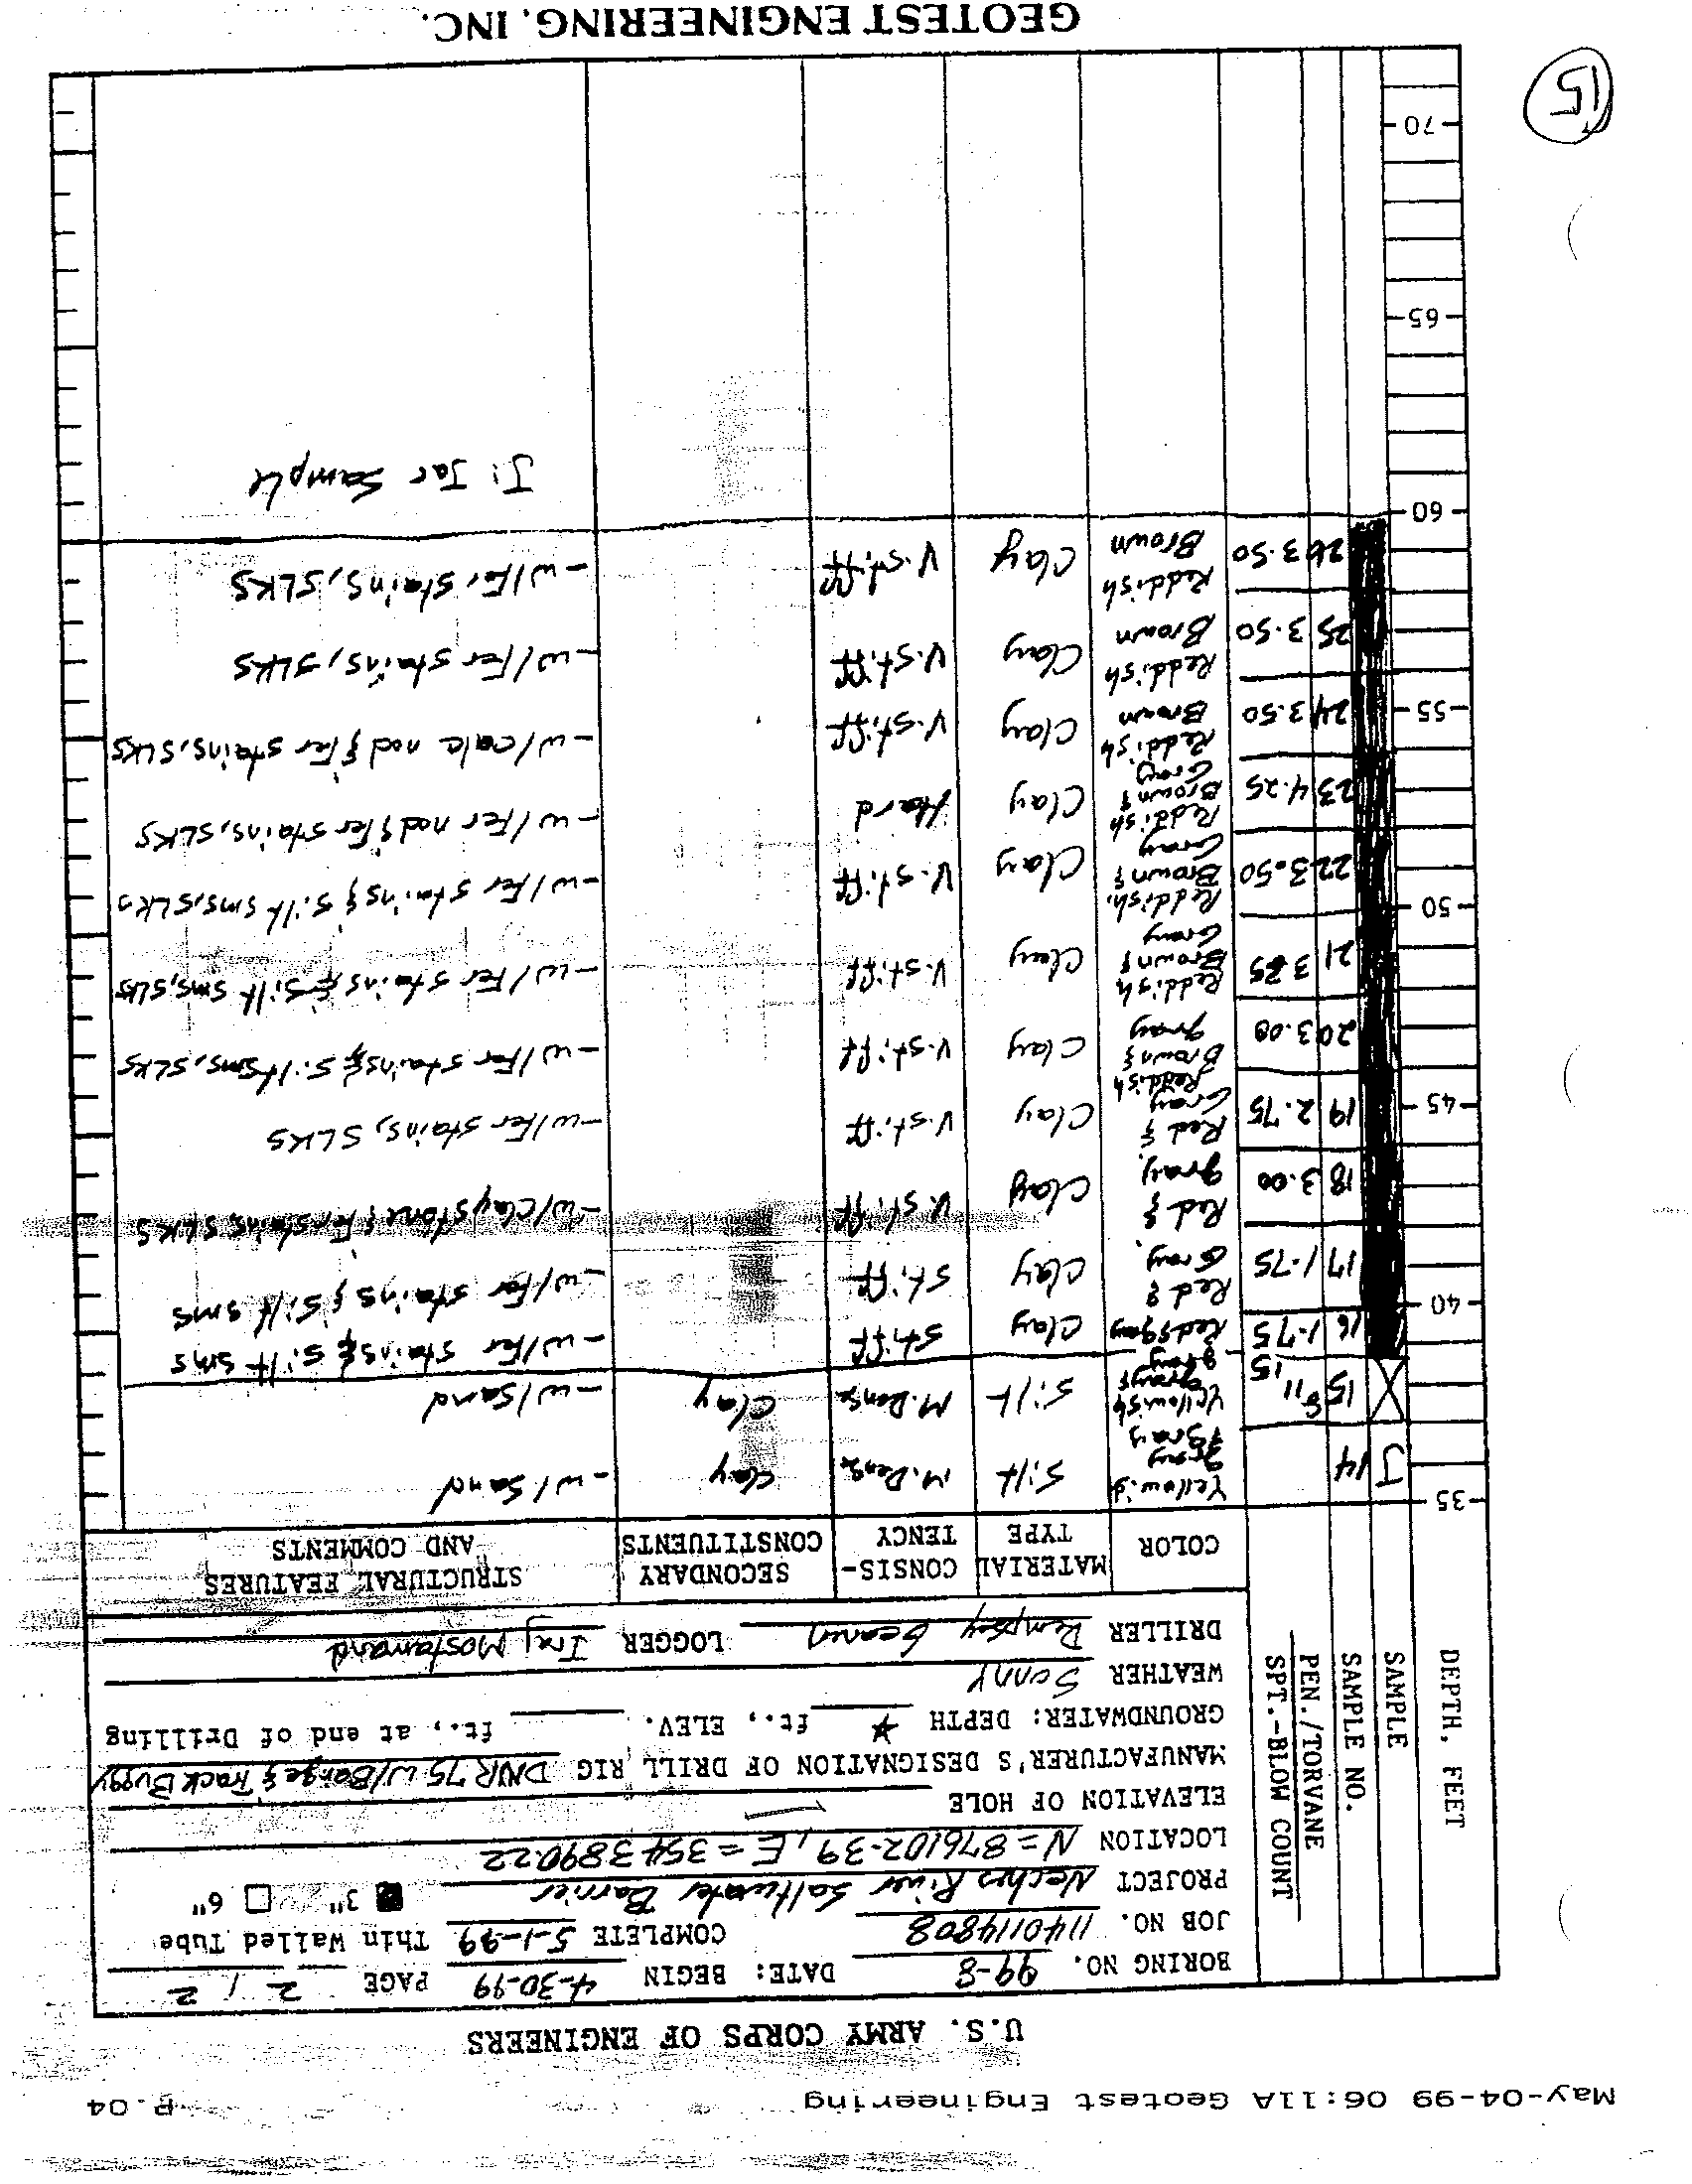 May-04-99 06:11A Geotest Engineering P.04
U.S. ARMY CORPS OF ENGINEERS
BORING NO. 99-8 DATE: BEGIN 4-30-99 PAGE 2 / 2
JOB NO. 1140114808 COMPLETE 5-1-99 Thin Walled Tube
PROJECT Neches River Saltwater Barrier 3" 6"
LOCATION N=876102.39, E=3543890.22
ELEVATION OF HOLE —
MANUFACTURER'S DESIGNATION OF DRILL RIG DNR 75 W/Barge & Track Buggy
GROUNDWATER: DEPTH * ft., ELEV. ft., at end of Drilling
WEATHER Sunny
DRILLER LOGGER Iraj Mostamand
DEPTH, FEET
SAMPLE
SAMPLE NO.
PEN./TORVANE
SPT.-BLOW COUNT
COLOR
MATERIAL TYPE
CONSIS-
TENCY
SECONDARY
CONSTITUENTS
STRUCTURAL FEATURES
AND COMMENTS
35
J 14 gray Silt M.Dense Clay - w/ Sand
15 8 11 15 Yellowish gray & gray Silt M.Dense Clay - w/ Sand
16 1.75 Red & gray Clay Stiff - w/Fer stains & Silt sms
40
17 1.75 Red & Gray Clay Stiff - w/Fer stains & Silt sms
18 3.00 Red & gray Clay V.stiff - w/Claystone & Fer stains, SLKS
45
19 2.75 Red & Gray Clay V.stiff - w/Fer stains, SLKS
20 3.00 Reddish Brown & gray Clay V.stiff - w/Fer stains & Silt sms, SLKS
21 Reddish Brown & Gray Clay V.stiff - w/Fer stains & Silt sms, SLKS
50
22 3.50 Reddish Brown & Gray Clay V.stiff - w/Fer stains & Silt sms, SLKS
23 4.25 Reddish Brown & Gray Clay Hard - w/Fer nod & fer stains, SLKS
55
24 3.50 Reddish Brown Clay V.stiff - w/calc nod & fer stains, SLKS
25 3.50 Reddish Brown Clay V.stiff - w/fer stains, SLKS
26 3.50 Reddish Brown Clay V.stiff - w/Fer stains, SLKS
60
J: Jar Sample
65
70
15
GEOTEST ENGINEERING, INC.